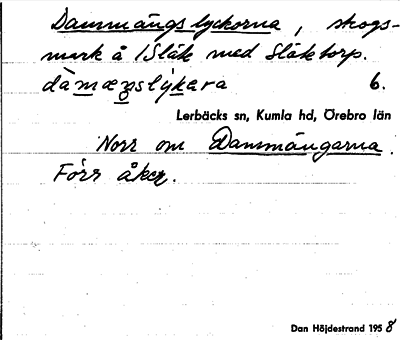 Dammängslyckorna, skogs-
mark å 1 Släk med Släktorp.
dàmæŋslýkɐra 6.
Lerbäcks sn, Kumla hd, Örebro län
Norr om Dammängarna.
Förr åker.
Dan Höjdestrand 1958